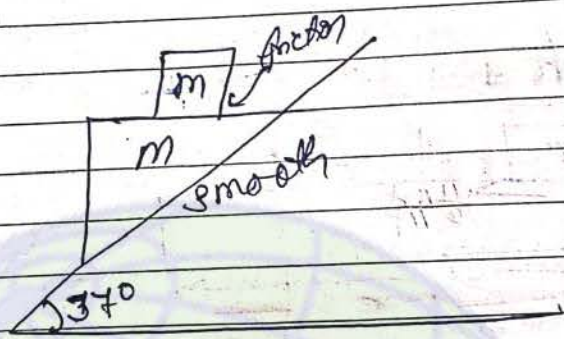 friction
m
m
smooth
37°